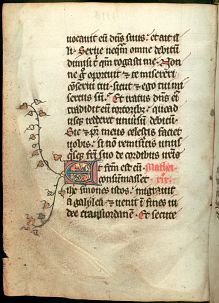 uocauit eu dns suus. et ait il
li. Serue nequam omne debitu
dimisi t̄ qm̄ rogasti me. Non
ne g̊ oportuit & te misereri
conserui tui. sicut & ego tui mi
sertus su. Et iratus dns ei
tradidit eu tortorib. quad
usq redderet uniuersu debitu.
Sic & pr meus celestis faciet
uobis. si no remiseritis unus
quisq fri suo de cordibus uris
fcm est cu
consumasset
ihc sermones istos. migrauit
a galilea. & uenit i fines iu
dee trans iordanem. Et secute